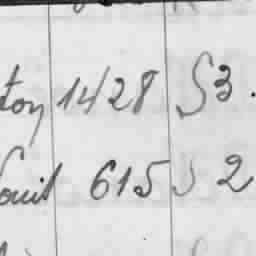 ton 1428 S 3.
615 S 2